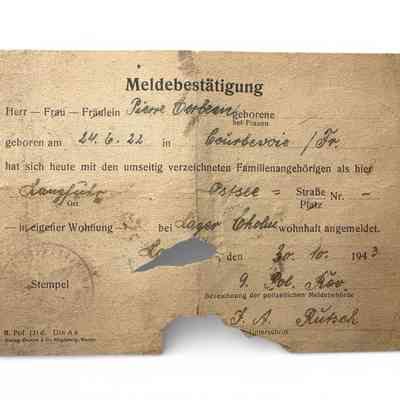 Meldebestätigung
Herr — Frau — Fräulein Pierre geborene
bei Frauen
geboren am 24.6.22 in Courbevoie / Fr.
hat sich heute mit den umseitig verzeichneten Familienangehörigen als hier
Langfuhr Ostsee = Straße Nr. –
Ort Platz
— in eigener Wohnung — bei Lager wohnhaft angemeldet.
, den 30. 10. 1943
Stempel 9. Pol. Rev.
Bezeichnung der polizeilichen Meldebehörde
J. A.
Unterschrift